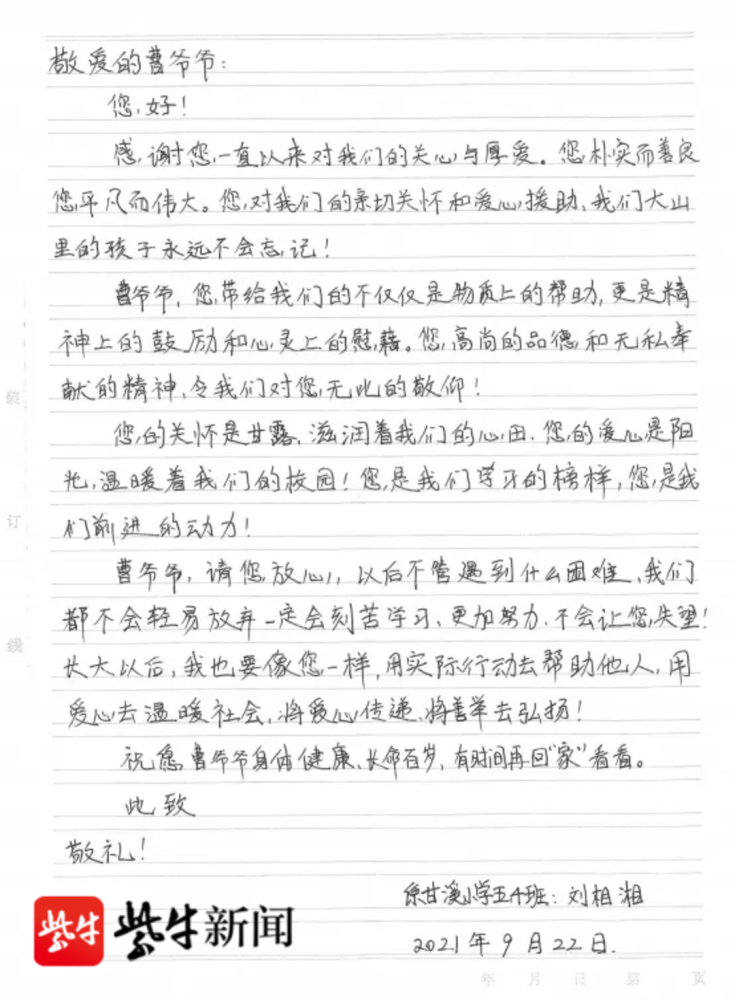 敬爱的曹爷爷：
您好！
感谢您一直以来对我们的关心与厚爱。您朴实而善良
您平凡而伟大。您对我们的亲切关怀和爱心援助，我们大山
里的孩子永远不会忘记！
曹爷爷，您带给我们的不仅仅是物质上的帮助，更是精
神上的鼓励和心灵上的慰藉。您高尚的品德和无私奉
献的精神，令我们对您无比的敬仰！
您的关怀是甘露，滋润着我们的心田，您的爱心是阳
光，温暖着我们的校园！您是我们学习的榜样，您是我
们前进的动力！
曹爷爷，请您放心，以后不管遇到什么困难，我们
都不会轻易放弃一定会刻苦学习、更加努力，不会让您失望！
长大以后，我也要像您一样，用实际行动去帮助他人，用
爱心去温暖社会，将爱心传递，将善举去弘扬！
祝愿曹爷爷身体健康、长命百岁，有时间再回“家”看看。
此致
敬礼！
原甘溪小学五4班：刘相湘
2021年9月22日.
装
订
线
紫牛
紫牛新闻
年 月 日 第 页